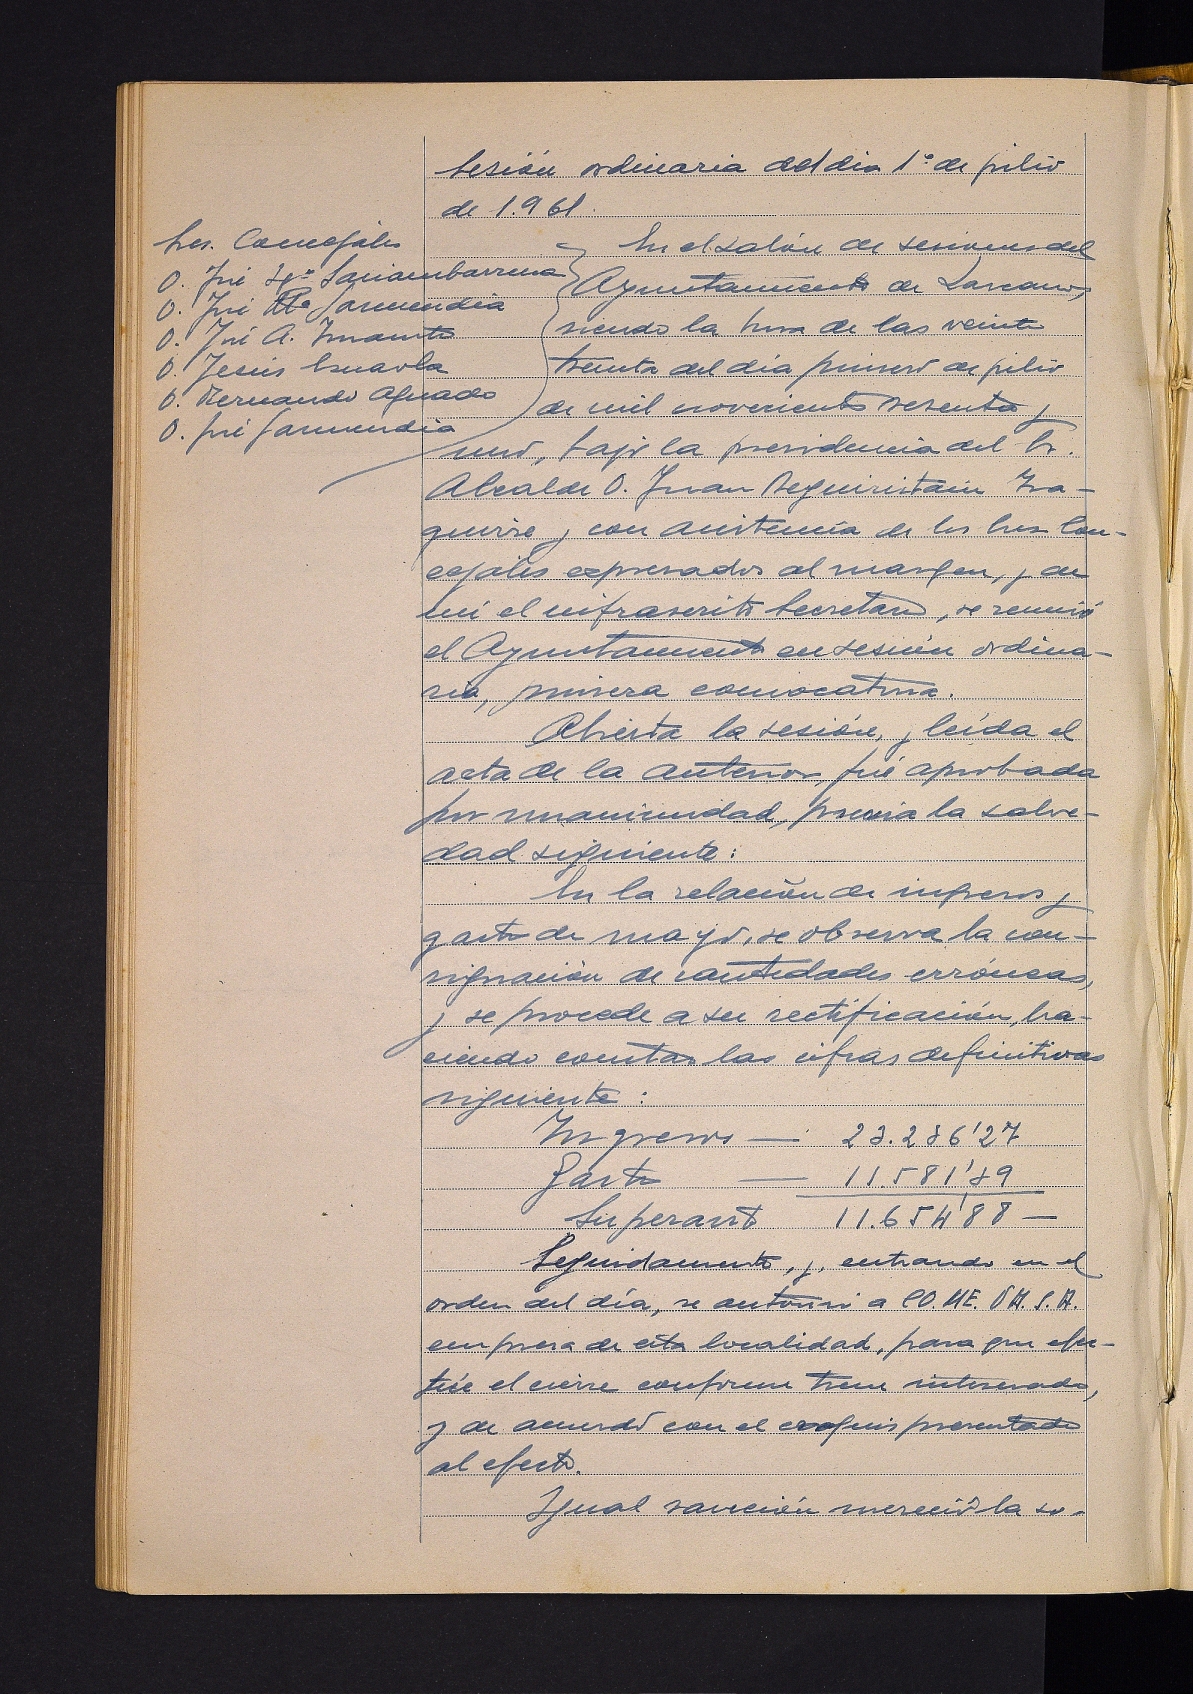 Sesión ordinaria del dia 1º de julio
de 1.961.
Sres. Concejales
D. José Mª Sariambarrena
D. José Mª Garmendia
D. José A. Imaz
D. Jesús Esnaola
D. Fernando Aguado
D. José Garmendia
En el salón de sesiones del
Ayuntamiento de Lazcano,
siendo la hora de las veinte
treinta del día primero de julio
de mil novecientos sesenta y
uno, bajo la presidencia del Sr.
Alcalde D. Juan Beguiristain Iza-
guirre y con asistencia de los Sres Con-
cejales expresados al margen, y de
mí el infrascrito Secretario, se reunió
el Ayuntamiento en sesión ordina-
ria, primera convocatoria.
Abierta la sesión, y leída el
acta de la anterior, fué aprobada
por unanimidad, previa la salve-
dad siguiente:
En la relación de ingresos y
gastos de mayo, se observa la con-
signación de cantidades erróneas,
y se procede a su rectificación, ha-
ciendo constar las cifras definitivas
siguiente:
Ingresos — 23.236'27
Gastos — 11581'39
Superavit 11.654'88 —
Seguidamente, y, entrando en el
orden del día, se autorizó a CO.ME.DA.S.A.
empresa de esta localidad, para que efec-
túe el cierre conforme tiene interesado,
y de acuerdo con el croquis presentado
al efecto.
Igual sanción mereció la so-